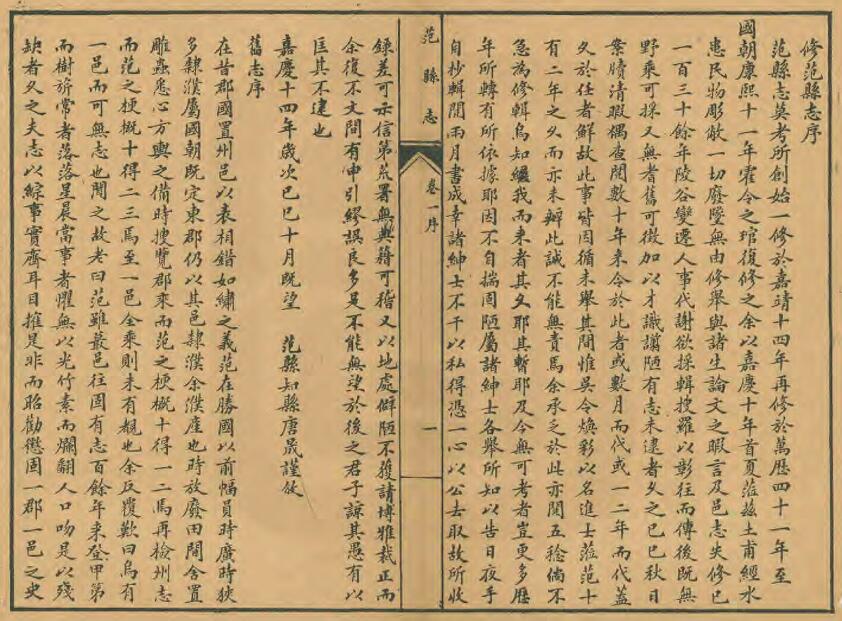 修范縣志序
范縣志莫考所創始一修於嘉靖十四年再修於萬歷四十一年至
國朝康熙十一年霍令之琯復修之余以嘉慶十年首夏蒞茲土甫經水
患民物彫敝一切廢墜無由修舉與諸生論文之暇言及邑志失修已
一百三十餘年陵谷變遷人事代謝欲採輯搜羅以彰往而傳後既無
野乘可採又無耆舊可徵加以才識譾陋有志未逮者久之己巳秋日
案牘清暇偶查閱數十年來令於此者或數月而代或一二年而代蓋
久於任者鮮故此事皆因循未舉其間惟吳令煥彩以名進士蒞范十
有二年之久而亦未辦此誠不能無責焉余承乏於此亦閱五稔倘不
急為修輯烏知繼我而來者其久耶其暫耶及今無可考者豈更多歷
年所轉有所依據耶因不自揣固陋屬諸紳士各舉所知以告日夜手
自抄輯閱兩月書成幸諸紳士不干以私得憑一心以公去取故所收
范縣志
卷一序
一
錄差可示信第荒署無典籍可稽又以地處僻陋不獲請博雅裁正而
余復不文間有申引繆誤良多是不能無望於後之君子諒其愚有以
匡其不逮也
嘉慶十四年歲次己巳十月既望 范縣知縣唐晟謹敘
舊志序
在昔郡國置州邑以表相錯如繡之義范在勝國以前幅員時廣時狹
多隸濮屬國朝既定東郡仍以其邑隸濮余濮產也時放廢田間舍置
雕蟲悉心方輿之備時搜覽郡乘而范之梗概十得一二焉再檢州志
而范之梗概十得二三焉至一邑全乘則未有覩也余反覆歎曰烏有
一邑而可無志也聞之故老曰范雖蕞邑往固有志百餘年來登甲第
而樹旂常者落落星晨當事者懼無以光竹素而爛翻人口吻是以殘
缺者久之夫志以綜事實齊耳目摧是非而昭勸懲固一郡一邑之史